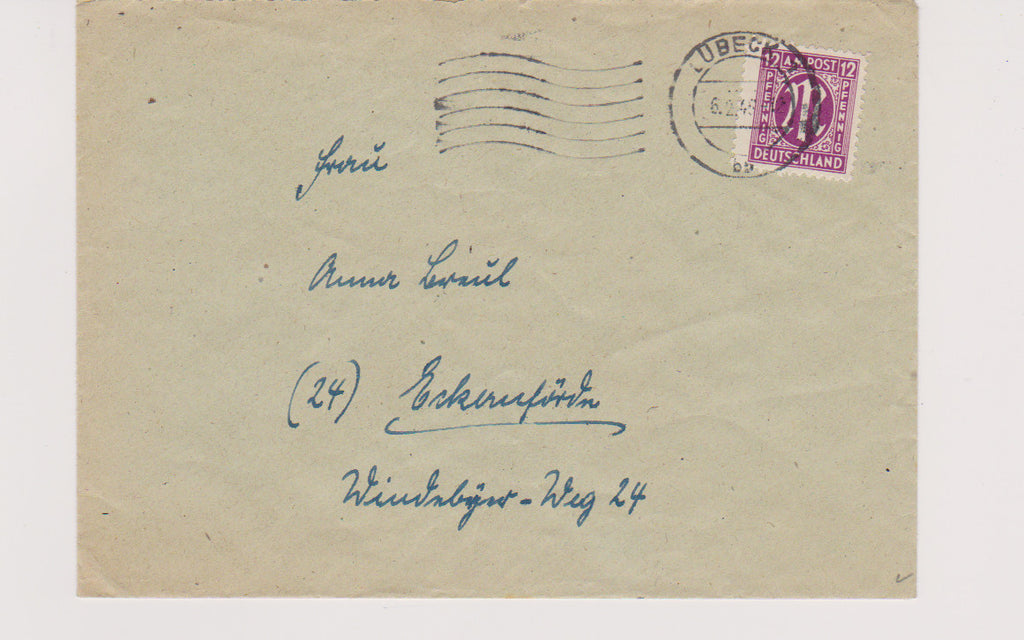 LÜBECK
6.2.46
bb
12 AM POST 12
PFENNIG
PFENNIG
M
DEUTSCHLAND
Frau
Anna Breül
(24) Eckernförde
Windebyer-Weg 24